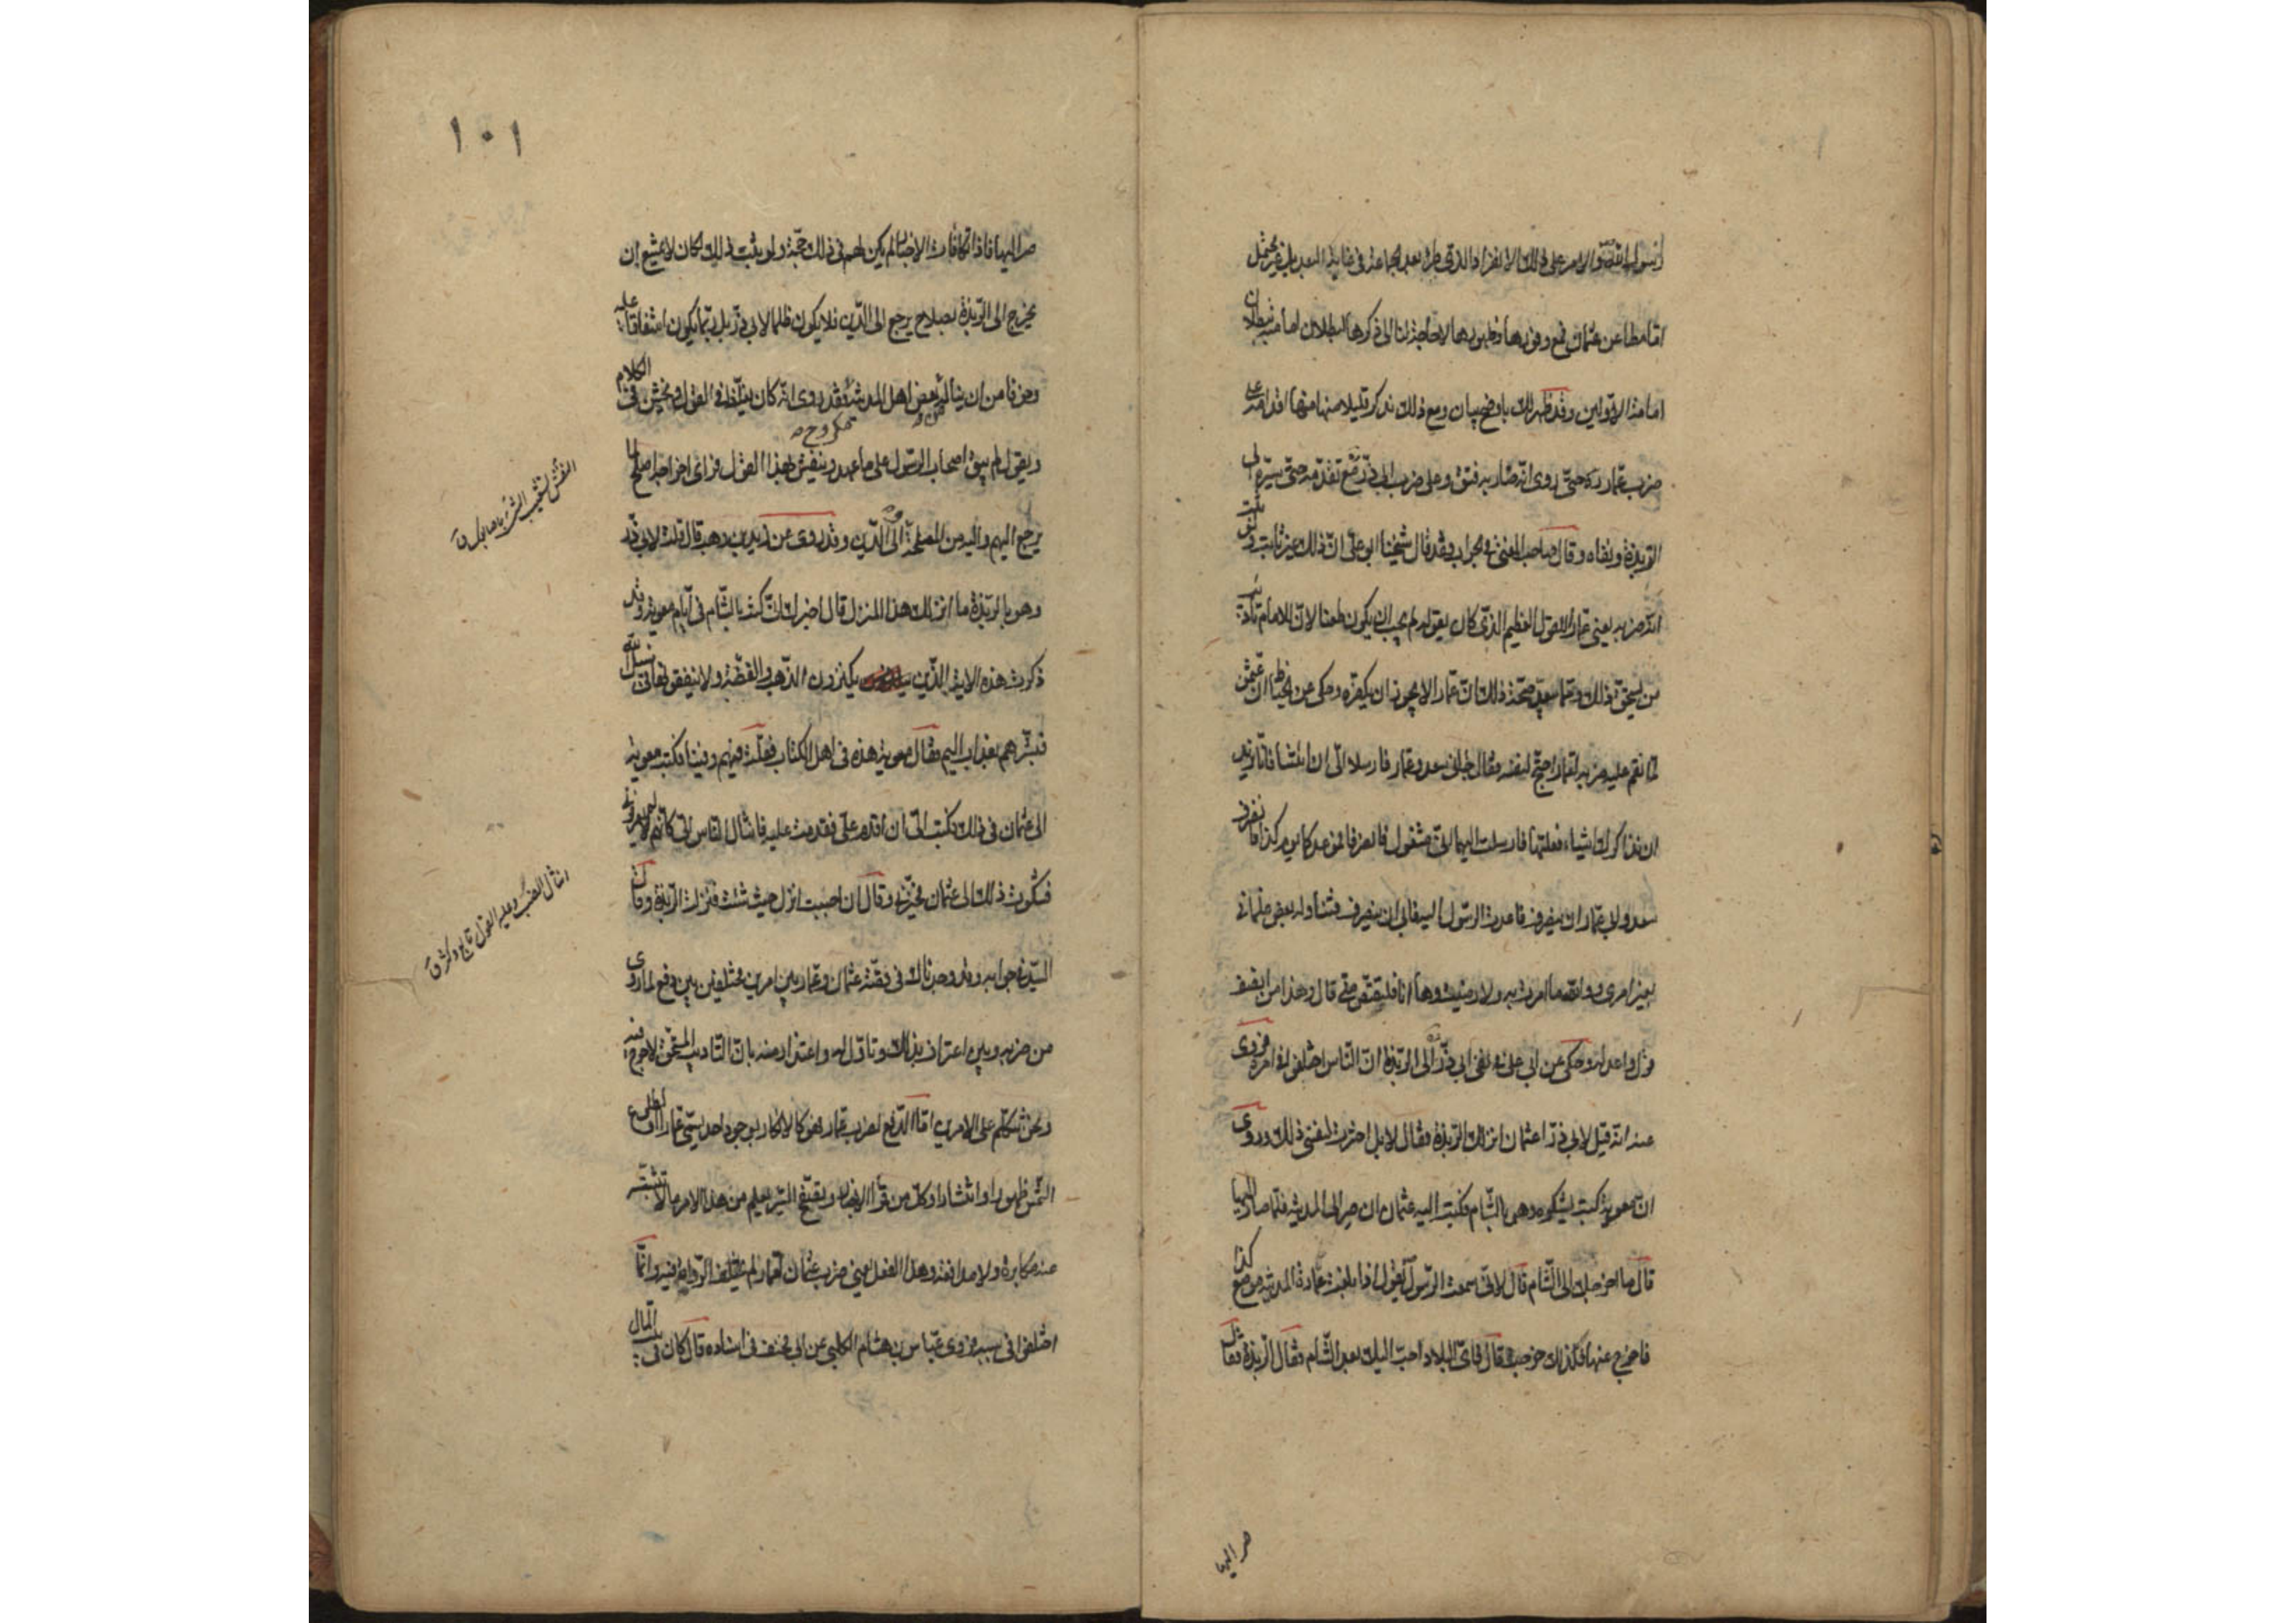 اما مطاعن عثمان فمع وفورها وظهورها لا حاجة لنا الى ذكرها لبطلان امامته ببطلان
امامة الاولين وقد ظهر لك باوضح بيان ومع ذلك نذكر قليلا منها منها اقدامه على
ضرب عمار ره حتى روى انه صار به فتق وعلى ضرب ابى ذر مع تقدمه حتى سيره الى
الربذة ونفاه وقال صاحب المغنى فى الجواب وقد قال شيخنا ابو على ان ذلك غير ثابت ولو ثبت
انه ضربه يعنى عمارا للقول العظيم الذى كان يقوله لم يجب ان يكون طعنا لان للامام تأديب
من يستحق ذلك ومما يبعد صحة ذلك ان عمارا لا يجوز ان يكفره وحكى عن الخياط ان عثمن
لما نقم عليه ضربه لعمار احتج لنفسه فقال جاءنى سعد وعمار فارسلا الى ان ائتنا فانا نريد
ان نذاكرك اشياء فعلتها فارسلت اليهما انى مشغول فانصرفا فموعدكما يوم كذا فانصرف
سعد وابى عمار ان ينصرف فاعدت الرسول اليه فابى ان ينصرف فتناوله بعض غلمانى
بغير امرى ووالله ما امرت به ولا رضيت وها انا فليقتص منى قال وهذا من انصف
قول واعدله وحكى عن ابى على فى نفى ابى ذر الى الربذة ان الناس اختلفوا فى امره فروى
عنه انه قيل لابى ذر اعثمان انزلك الربذة فقال لا بل اخترت لنفسى ذلك وروى
ان معوية كتب يشكوه وهو بالشام فكتب اليه عثمان ان صر الى المدينة فلما صار اليها
قال ما اخرجك الى الشام قال لانى سمعت الرسول يقول اذا بلغت عمارة المدينة موضع كذا
فاخرج عنها فلذلك خرجت قال فاى البلاد احب اليك بعد الشام فقال الربذة فقال
صر اليها
١٠١
صر اليها فاذا تكافأت الاخبار لم يكن لهم فى ذلك حجة ولو ثبت ذلك لكان لا يمتنع ان
يخرج الى الربذة لصلاح يرجع الى الدين فلا يكون ظلما لابى ذر بل ربما يكون اشفاقا عليه
وخوفا من ان يناله بعض اهل المدينة مكروه فقد روى انه كان يغلظ فى القول ويخشن فى الكلام
ويقول لم يبق اصحاب الرسول على ما عهد وينفش بهذا القول فرأى اخراجه اصلح لما
يرجع اليهم واليه من المصلحة والى الدين وقد روى عن زيد بن وهب قال قلت لابى ذر
وهو بالربذة ما انزلك هذا المنزل قال اخبرك انى كنت بالشام فى ايام معوية وقد
ذكرت هذه الاية الذين يكنزون الذهب والفضة ولا ينفقونها فى سبيل الله
فبشرهم بعذاب اليم فقال معوية هذه فى اهل الكتاب فقلت فيهم وفينا فكتب معوية
الى عثمان فى ذلك فكتب الى ان اقدم على فقدمت عليه فانثال الناس الى كانهم لم يعرفونى
فشكوت ذلك الى عثمان فخيرنى وقال ان احببت انزل حيث شئت فنزلت الربذة وقال
السيد فى جوابه وقد وجدناك فى قصة عثمان وعمار بين امرين مختلفين بين دفع لما روى
من ضربه وبين اعتراف بذلك وتأول له واعتذار منه بان التأديب المستحق لا حرج فيه
ونحن نتكلم على الامرين اما الدفع لضرب عمار فهو كالانكار بوجود احد يسمى عمارا او لطلوع
الشمس ظهورا وانتشارا وكل من قرأ الاخبار وتصفح السير يعلم من هذا الامر ما لا تثنيه
عنه مكابرة ولا مدافعة وهذا الفعل يعنى ضرب عثمان لعمار لم تختلف الرواة فيه وانما
اختلفوا فى سببه فروى عباس بن هشام الكلبى عن ابى مخنف فى اسناده قال كان فى بيت المال
انثال انصب وعليه القول تتابع وكثر ق